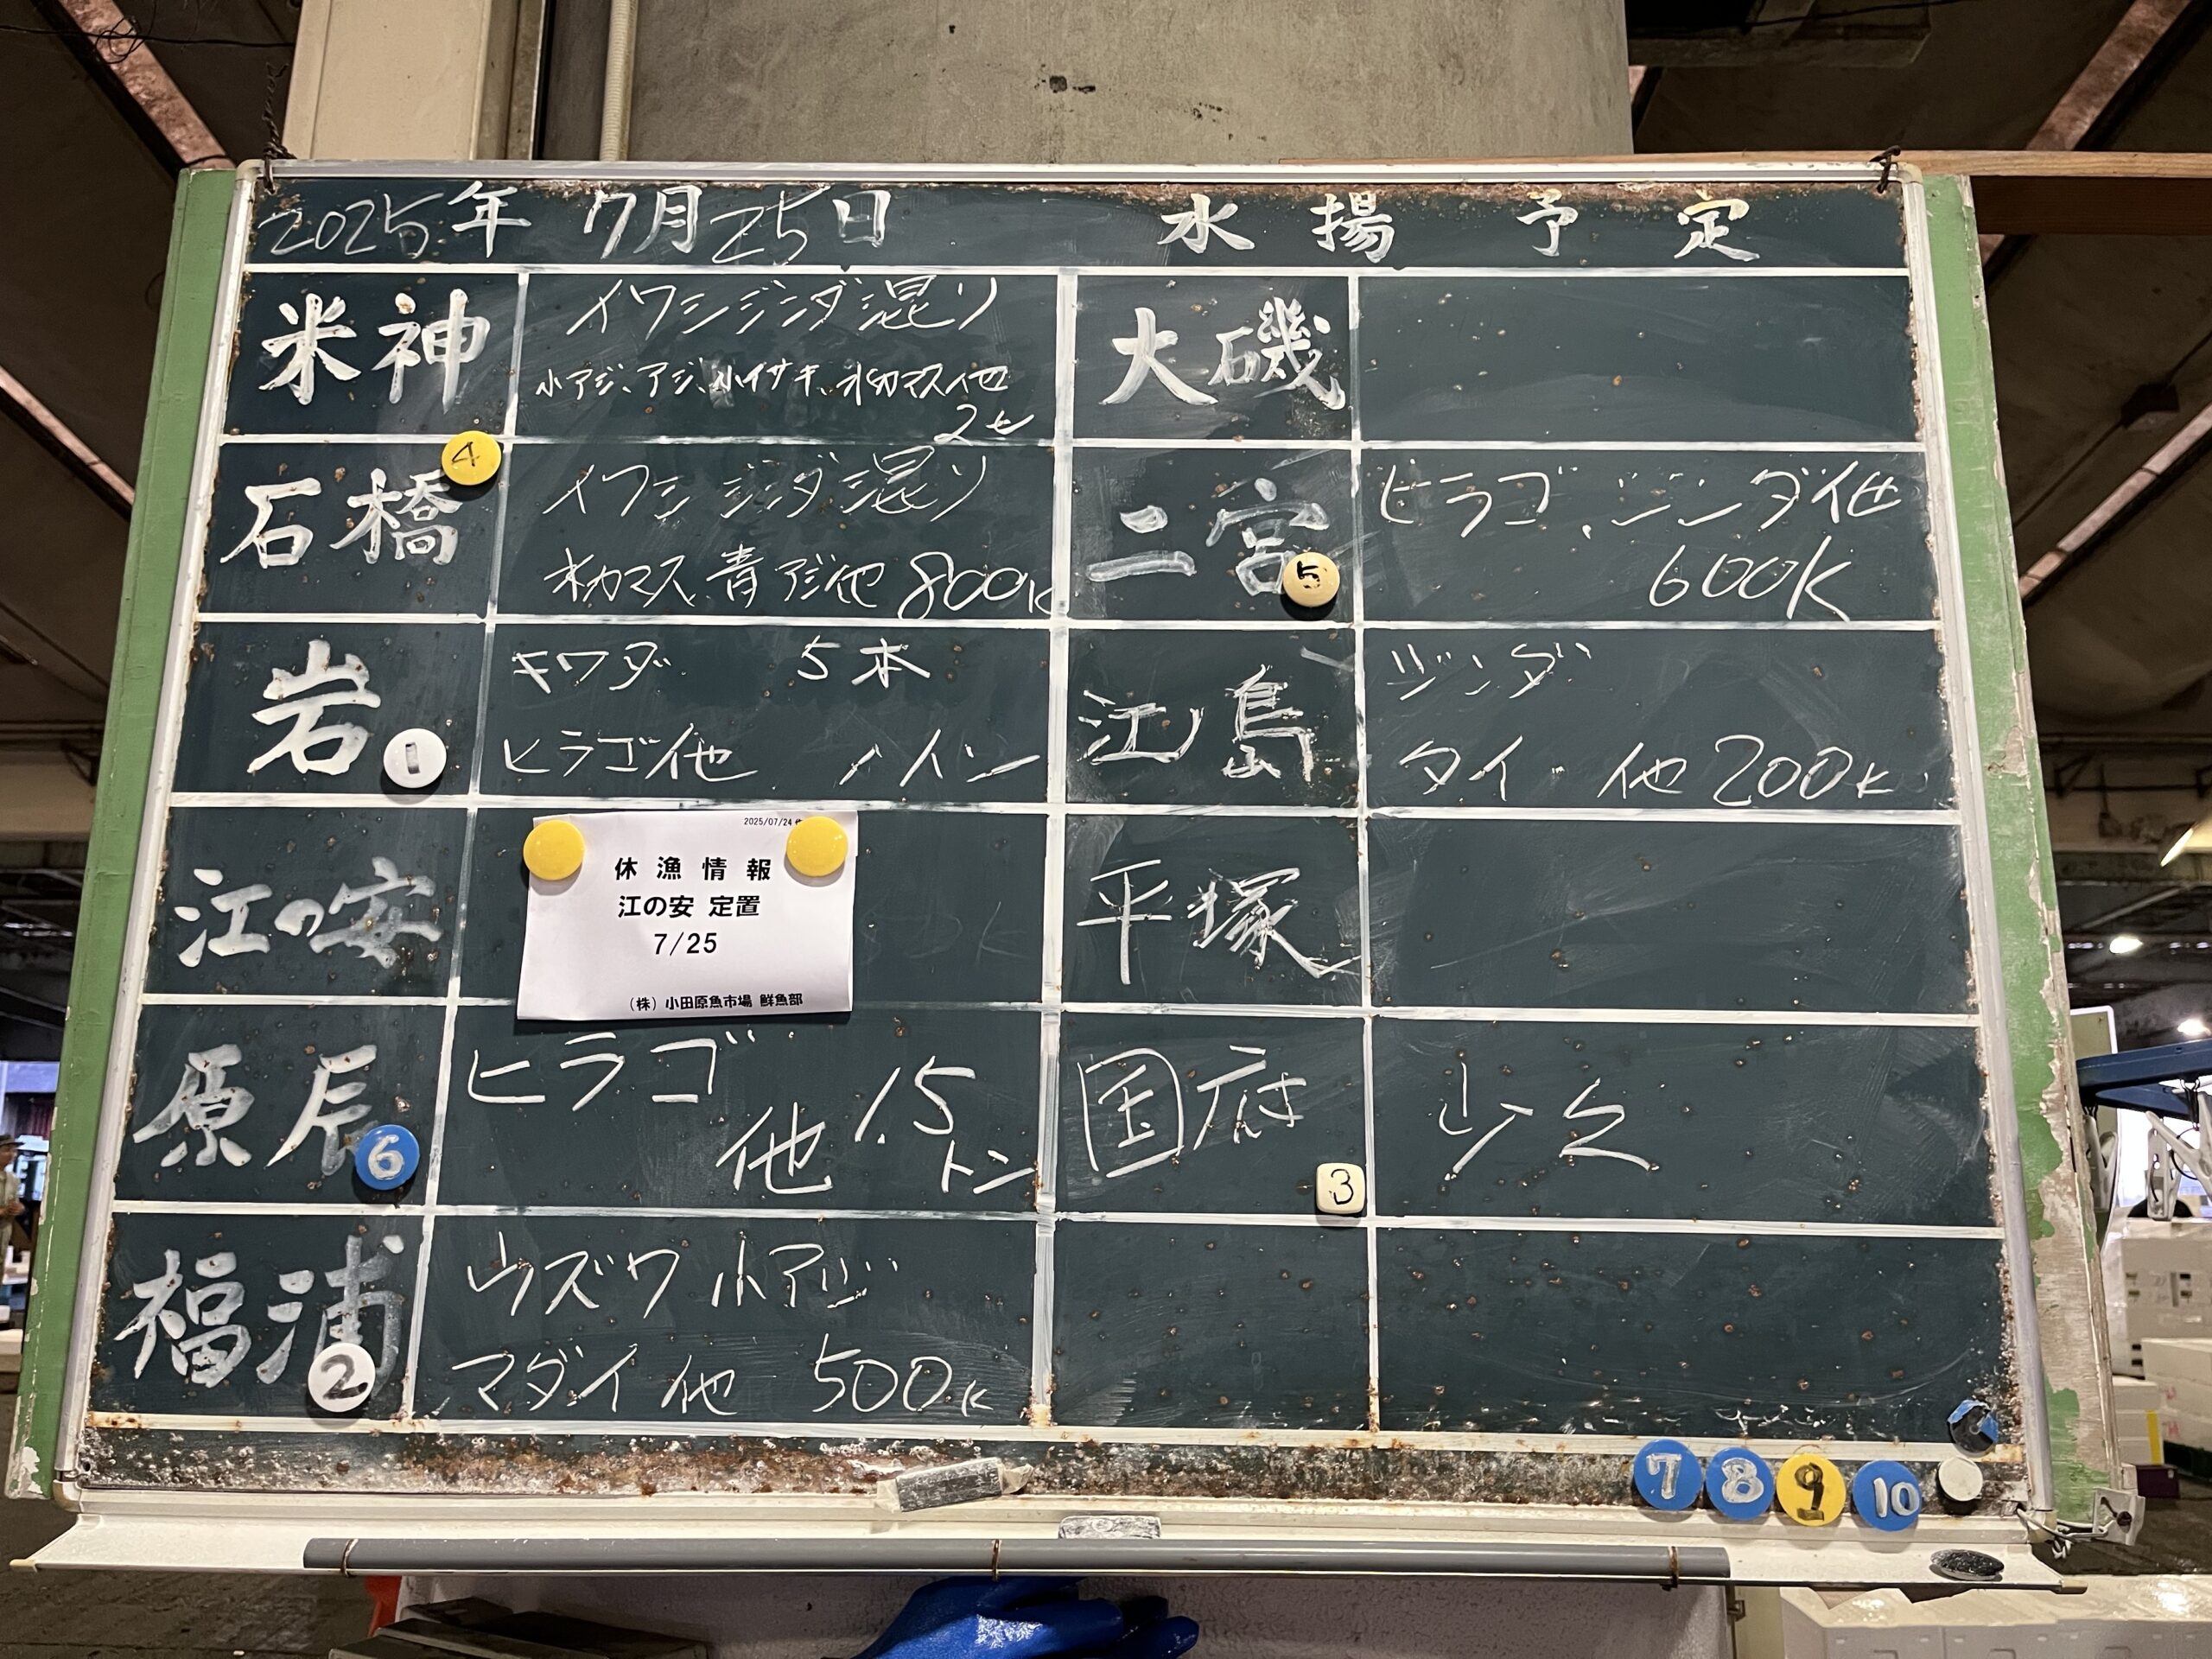 2025年 7月25日 水揚予定
米神
イワシジンダ混り
小アジ、アジ、小イサキ、水カマス他
2t
④
石橋
イワシジンダ混り
水カマス、青アジ他 800K
岩
①
キワダ 5本
ヒラゴ他 1トン
江の安
2025/07/24
休漁情報
江の安 定置
7/25
(株)小田原魚市場 鮮魚部
原辰
6
ヒラゴ
他 1.5
トン
福浦
2
ウズワ 小アジ
マダイ他 500K
大磯
二宮
5
ヒラゴ、ジンダ他
600K
江島
ジンダ
タイ 他 200K
平塚
国府
3
少々
7 8 9 10